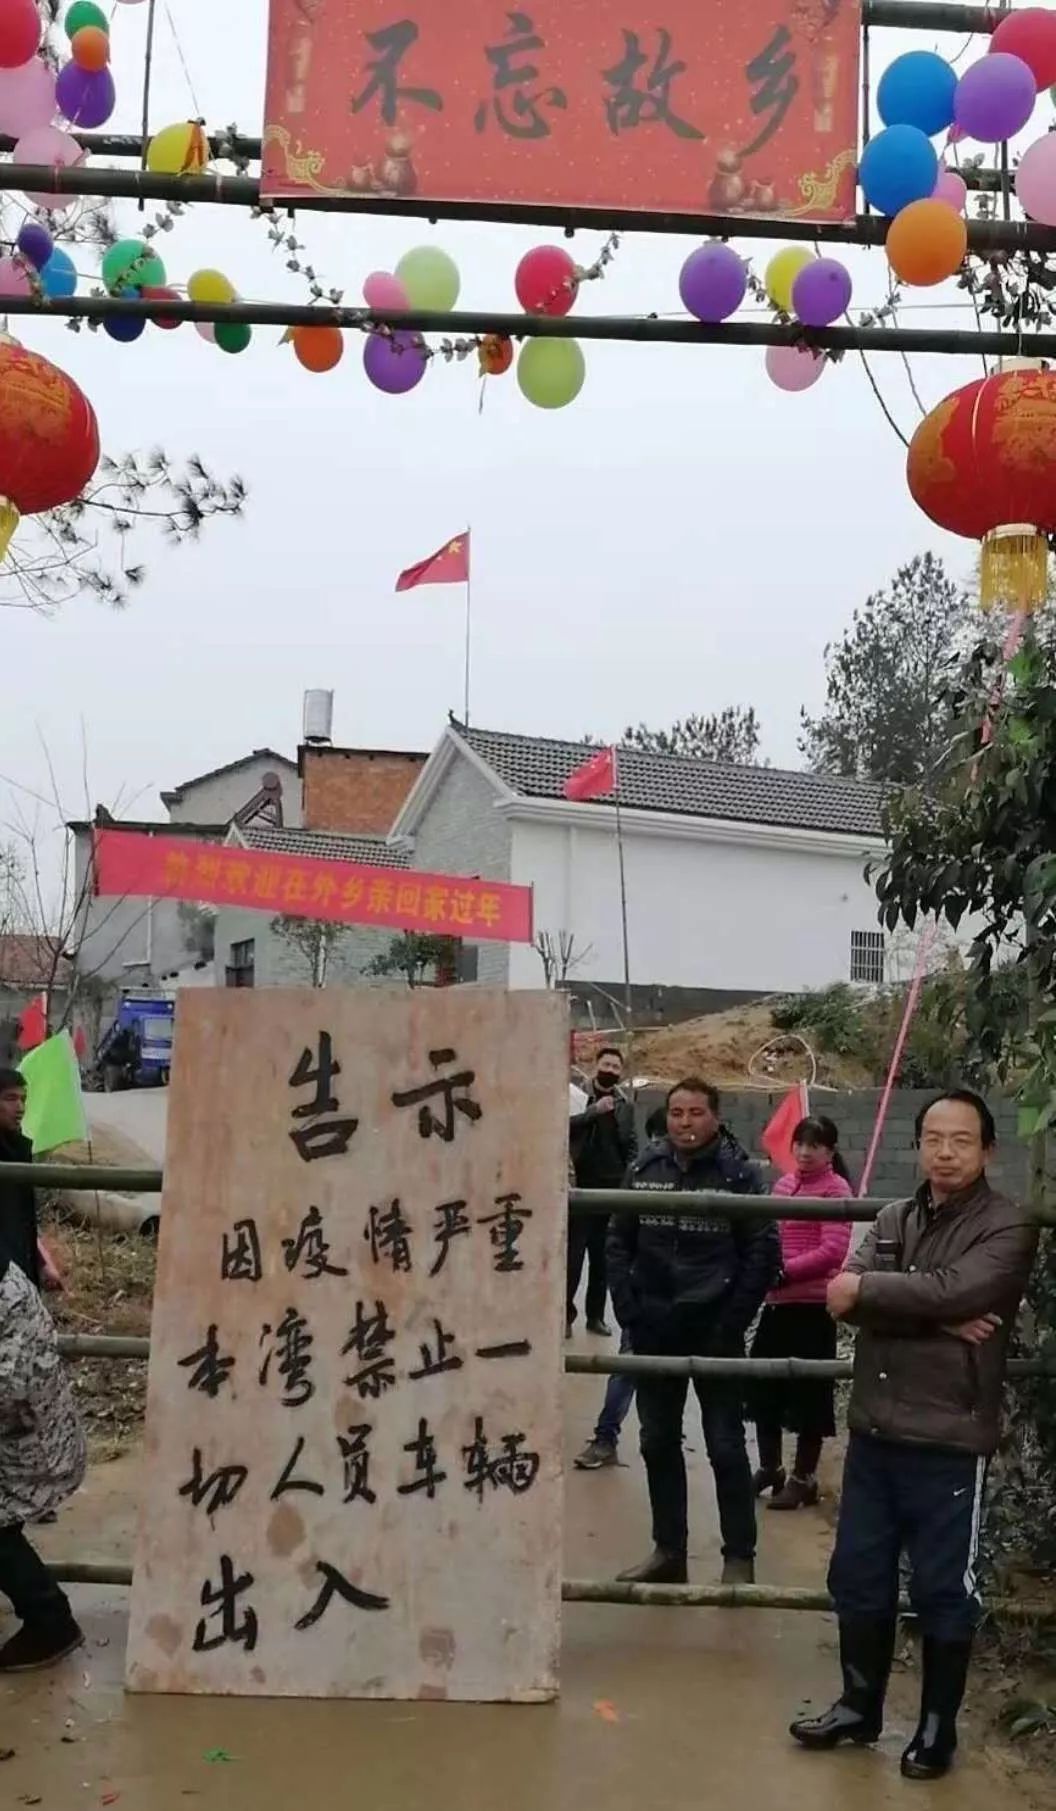 不忘故乡
欢迎在外乡亲回家过年
告示
因疫情严重
本湾禁止一
切人员车辆
出入